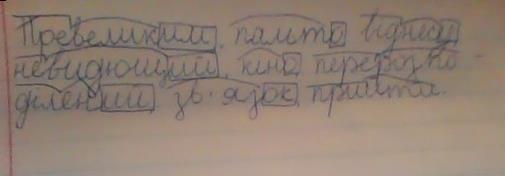 Превеликий, пальто віднесу
невидющий, кіно перерозпо-
ділений, зв'язок прийти.